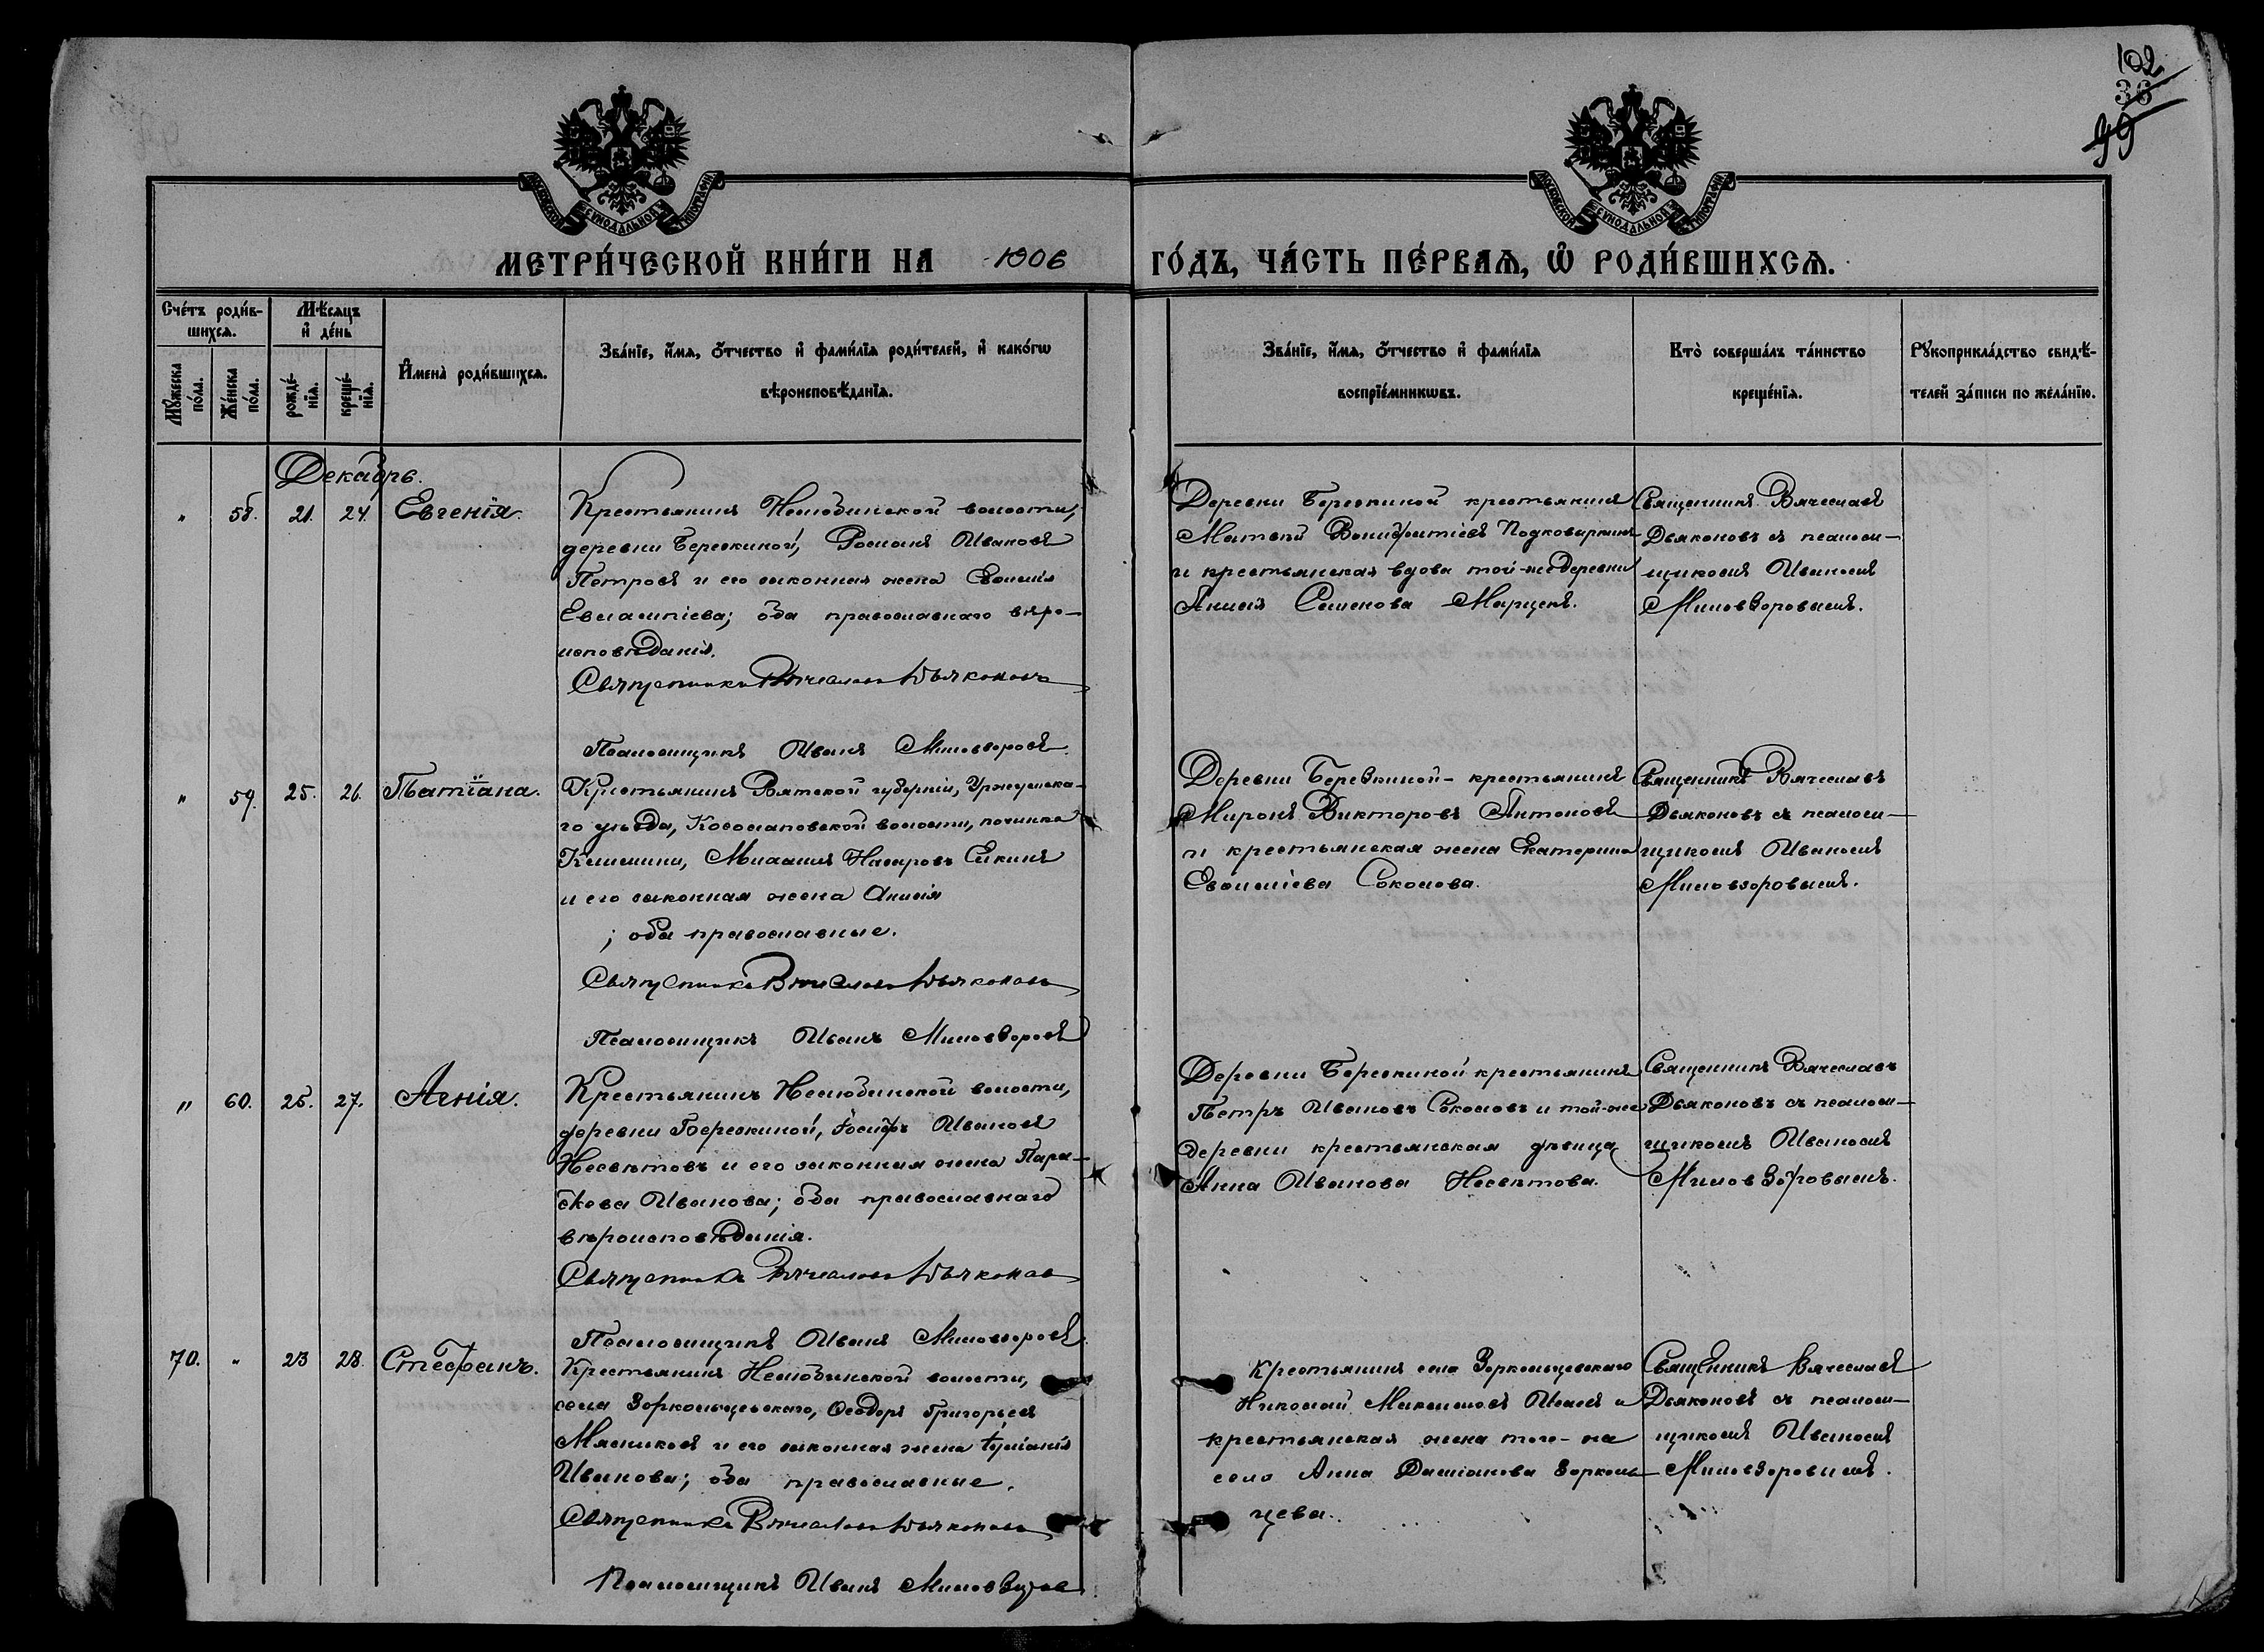 102
36
99
МОСКОВСКОЙ СѴНОДАЛЬНОЙ ТИПОГРАФІИ
МОСКОВСКОЙ СѴНОДАЛЬНОЙ ТИПОГРАФІИ
МЕТРИ́ЧЕСКОЙ КНИ́ГИ НА 1906 ГО́ДЪ, ЧА́СТЬ ПЕ́РВАѦ, Ѡ҆ РОДИ́ВШИХСѦ.
Сче́тъ роди́в-
шихсѧ.
Мꙋ́жеска
по́ла.
Же́нска
по́ла.
Мѣ́сяцъ
и҆ де́нь
рожде́-
нїѧ.
креще́-
нїѧ.
И҆мена̀ роди́вшихсѧ.
Зва́нїе, и҆́мѧ, ѻ҆́тчество и҆ фами́лїѧ роди́телей, и҆ како́гѡ
вѣроисповѣ́данїѧ.
Зва́нїе, и҆́мѧ, ѻ҆́тчество и҆ фами́лїѧ
воспрїе́мникѡвъ.
Кто̀ соверша́лъ та́инство
креще́нїѧ.
Рꙋкоприкла́дство свидѣ́-
телей за́писи по жела́нїю.
Декабрь.
" 58. 21. 24. Евгенія.
Крестьянинъ Нелюбинской волости,
деревни Березкиной, Романъ Ивановъ
Петровъ и его законная жена Евфимія
Евлампіева; оба православнаго вѣро-
исповѣданія.
Священникъ Вячеславъ Дьяконовъ
Псаломщикъ Иванъ Миловзоровъ.
Деревни Березкиной крестьянинъ
Матвѣй Вонифатіевъ Подковыркинъ
и крестьянская вдова той-же деревни
Анисія Семенова
Священникъ Вячеславъ
Дьяконовъ съ псалом-
щикомъ Иваномъ
Миловзоровымъ.
" 59. 25. 26. Татіана.
Крестьянинъ Вятской губерніи, Уржумска-
го уѣзда, волости, починка
Михаилъ Назаровъ
и его законная жена Анисія
; оба православные.
Священникъ Вячеславъ Дьяконовъ
Псаломщикъ Иванъ Миловзоровъ
Деревни Березкиной - крестьянинъ
Миронъ Викторовъ Антоновъ
и крестьянская жена Екатерина
Евфиміева Соколова.
Священникъ Вячеславъ
Дьяконовъ съ псалом-
щикомъ Иваномъ
Миловзоровымъ.
" 60. 25. 27. Агнія.
Крестьянинъ Нелюбинской волости,
деревни Березкиной, Іосифъ Ивановъ
Несвѣтовъ и его законная жена Пара-
скева Иванова; оба православнаго
вѣроисповѣданія.
Священникъ Вячеславъ Дьяконовъ
Псаломщикъ Иванъ Миловзоровъ.
Деревни Березкиной крестьянинъ
Петръ Ивановъ Соколовъ и той-же
деревни крестьянская дѣвица
Анна Иванова Несвѣтова.
Священникъ Вячеславъ
Дьяконовъ съ псалом-
щикомъ Иваномъ
Миловзоровымъ.
70. " 23 28. Стефанъ.
Крестьянинъ Нелюбинской волости,
села Зоркольцевскаго, Ѳеодоръ Григорьевъ
Мясниковъ и его законная жена Іуліанія
Иванова; оба православные.
Священникъ Вячеславъ Дьяконовъ
Псаломщикъ Иванъ Миловзоровъ
Крестьянинъ села Зоркольцевскаго
Николай Максимовъ и
крестьянская жена того-же
села Анна Даміанова Зорколь-
цева.
Священникъ Вячеславъ
Дьяконовъ съ псалом-
щикомъ Иваномъ
Миловзоровымъ.